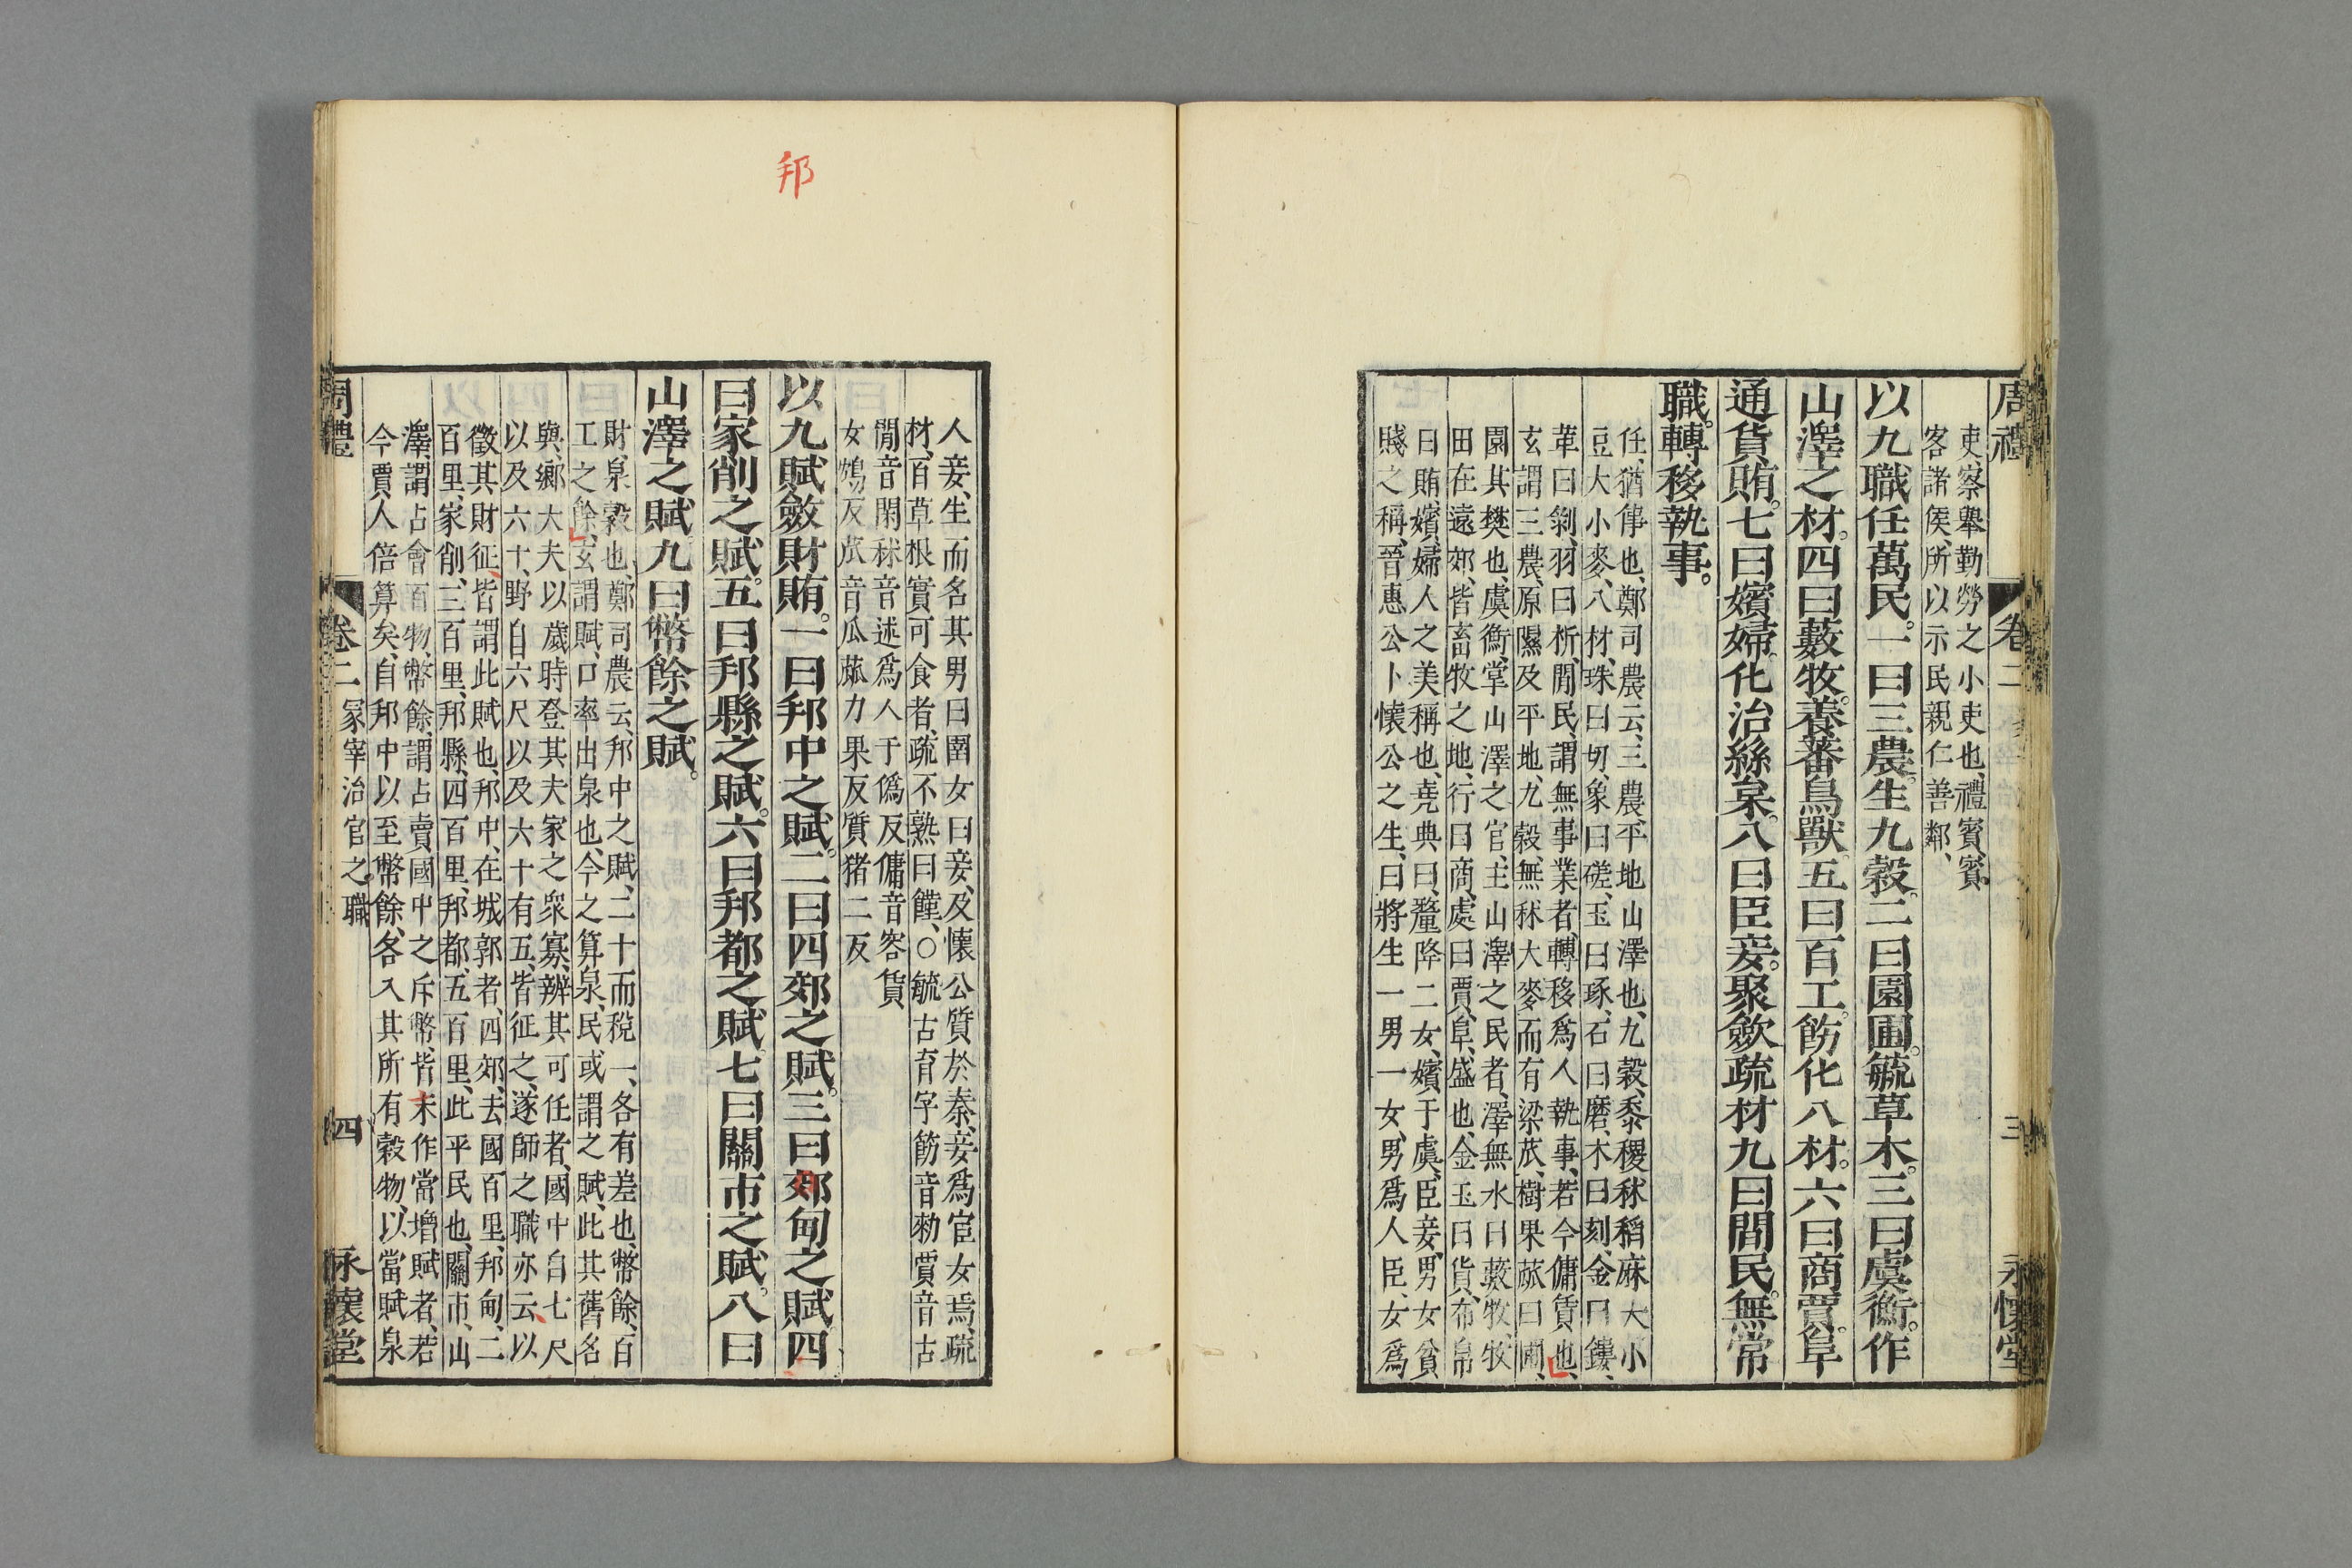 周禮 卷二 三 永懷堂
吏、察舉勤勞之小吏也、禮賓、賓
客諸侯、所以示民親仁善鄰、
以九職任萬民。一曰三農。生九穀。二曰園圃。毓草木。三曰虞衡。作
山澤之材。四曰藪牧。養蕃鳥獸。五曰百工。飭化八材。六曰商賈。阜
通貨賄。七曰嬪婦。化治絲枲。八曰臣妾。聚斂疏材九曰閒民。無常
職。轉移執事。
任、猶倳也、鄭司農云、三農、平地山澤也、九穀、黍稷秫稻麻大小
豆大小麥、八材、珠曰切、象曰磋、玉曰琢、石曰磨、木曰刻、金曰鏤、
革曰剝、羽曰析、閒民、謂無事業者、轉移爲人執事、若今傭賃也、
玄謂三農、原隰及平地、九穀、無秫大麥而有粱苽、樹果蓏曰圃、
園其樊也、虞衡、掌山澤之官、主山澤之民者、澤無水曰藪、牧、牧
田在遠郊、皆畜牧之地、行曰商、處曰賈、阜、盛也、金玉曰貨、布帛
曰賄、嬪、婦人之美稱也、堯典曰、釐降二女、嬪于虞、臣妾、男女貧
賤之稱、晉惠公卜懷公之生、曰將生一男一女、男爲人臣、女爲
人妾、生而名其男曰圉女曰妾、及懷公質於秦、妾爲宦女焉、疏
材、百草根實可食者、疏不熟曰饉、○毓古育字飭音勑賈音古
閒音閑秫音述爲人于僞反傭音容賃
女鴆反苽音瓜蓏力果反質猪二反
以九賦斂財賄。一曰邦中之賦。二曰四郊之賦。三曰郊甸之賦四
曰家削之賦。五曰邦縣之賦。六曰邦都之賦。七曰關市之賦。八曰
山澤之賦九曰幣餘之賦。
財、泉穀也、鄭司農云、邦中之賦、二十而稅一、各有差也、幣餘、百
工之餘、玄謂賦、口率出泉也、今之算泉、民或謂之賦、此其舊名
與、鄉大夫以歲時登其夫家之衆寡、辨其可任者、國中自七尺
以及六十、野自六尺以及六十有五、皆征之、遂師之職亦云、以
徵其財征、皆謂此賦也、邦中、在城郭者、四郊、去國百里、邦甸、二
百里、家削、三百里、邦縣、四百里、邦都、五百里、此平民也、關市、山
澤、謂占會百物、幣餘、謂占賣國中之斥幣、皆末作當增賦者、若
今賈人倍算矣、自邦中以至幣餘、各入其所有穀物、以當賦泉
周禮 卷二 冢宰治官之職 四 永懷堂
邦